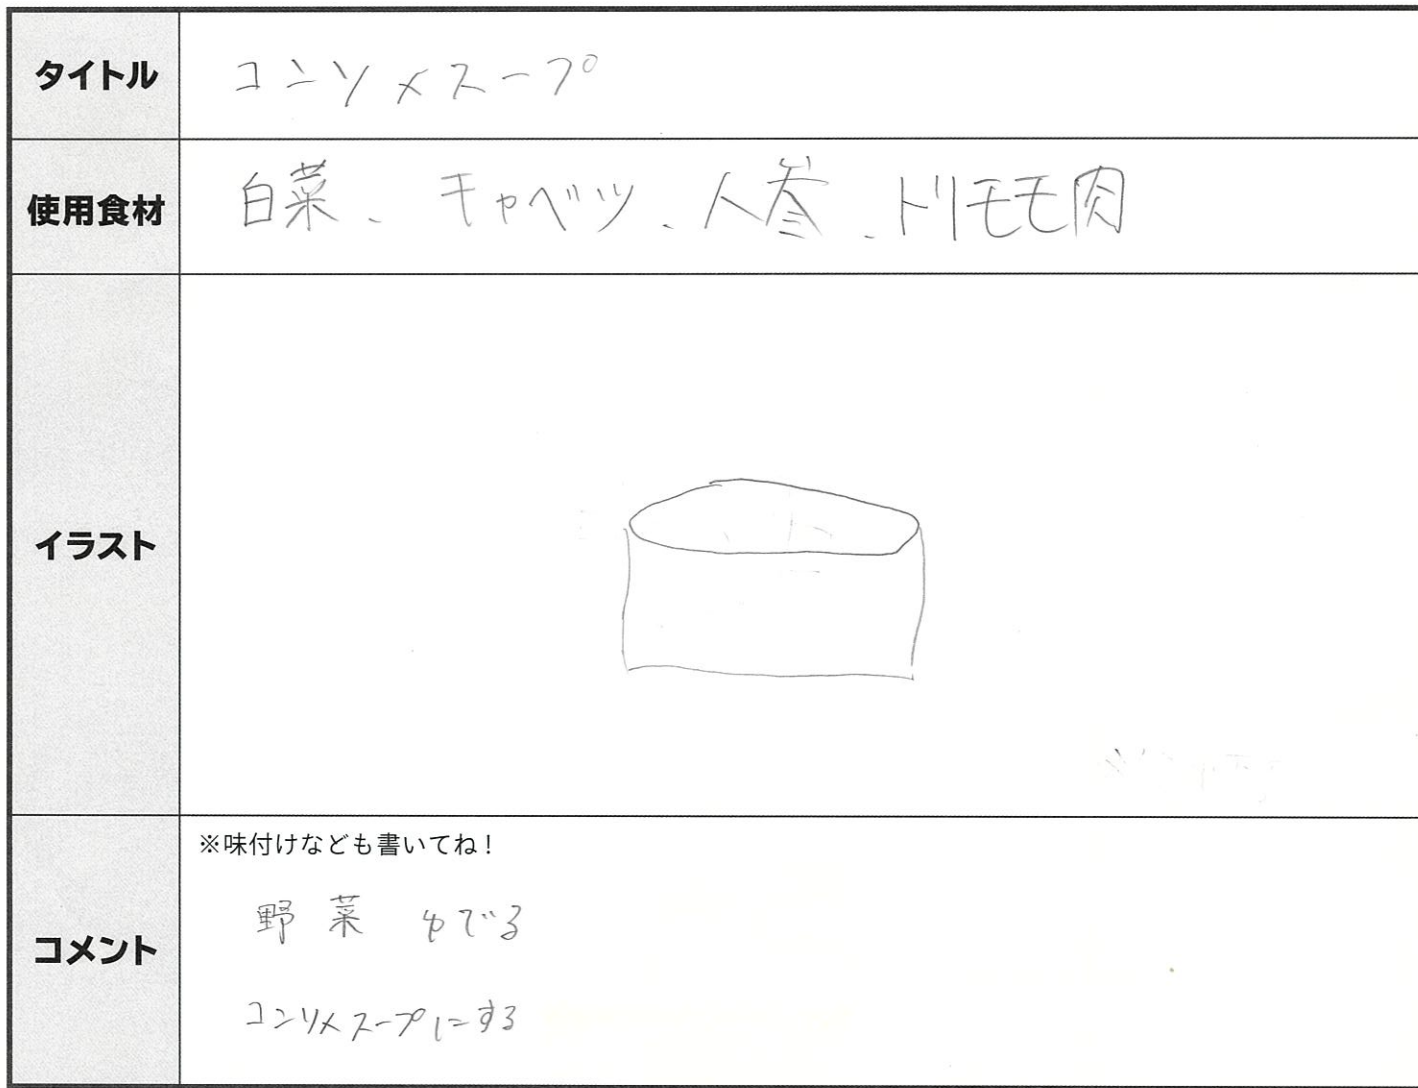 タイトル
コンソメスープ
使用食材
白菜、キャベツ、人参、トリモモ肉
イラスト
コメント
※味付けなども書いてね！
野菜 ゆでる
コンソメスープにする